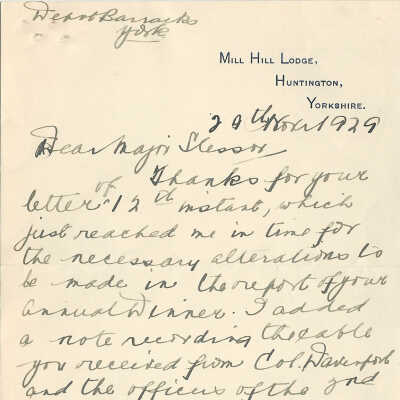 Depot Barracks
York
MILL HILL LODGE,
HUNTINGTON,
YORKSHIRE.
29th Novr 1929
Dear Major Slessor
Thanks for your
letter of 12th instant, which
just reached me in time for
the necessary alterations to
be made in the report of your
Annual Dinner. I added
a note recording the cable
you received from Col. Davenport
and the officers of the 2nd